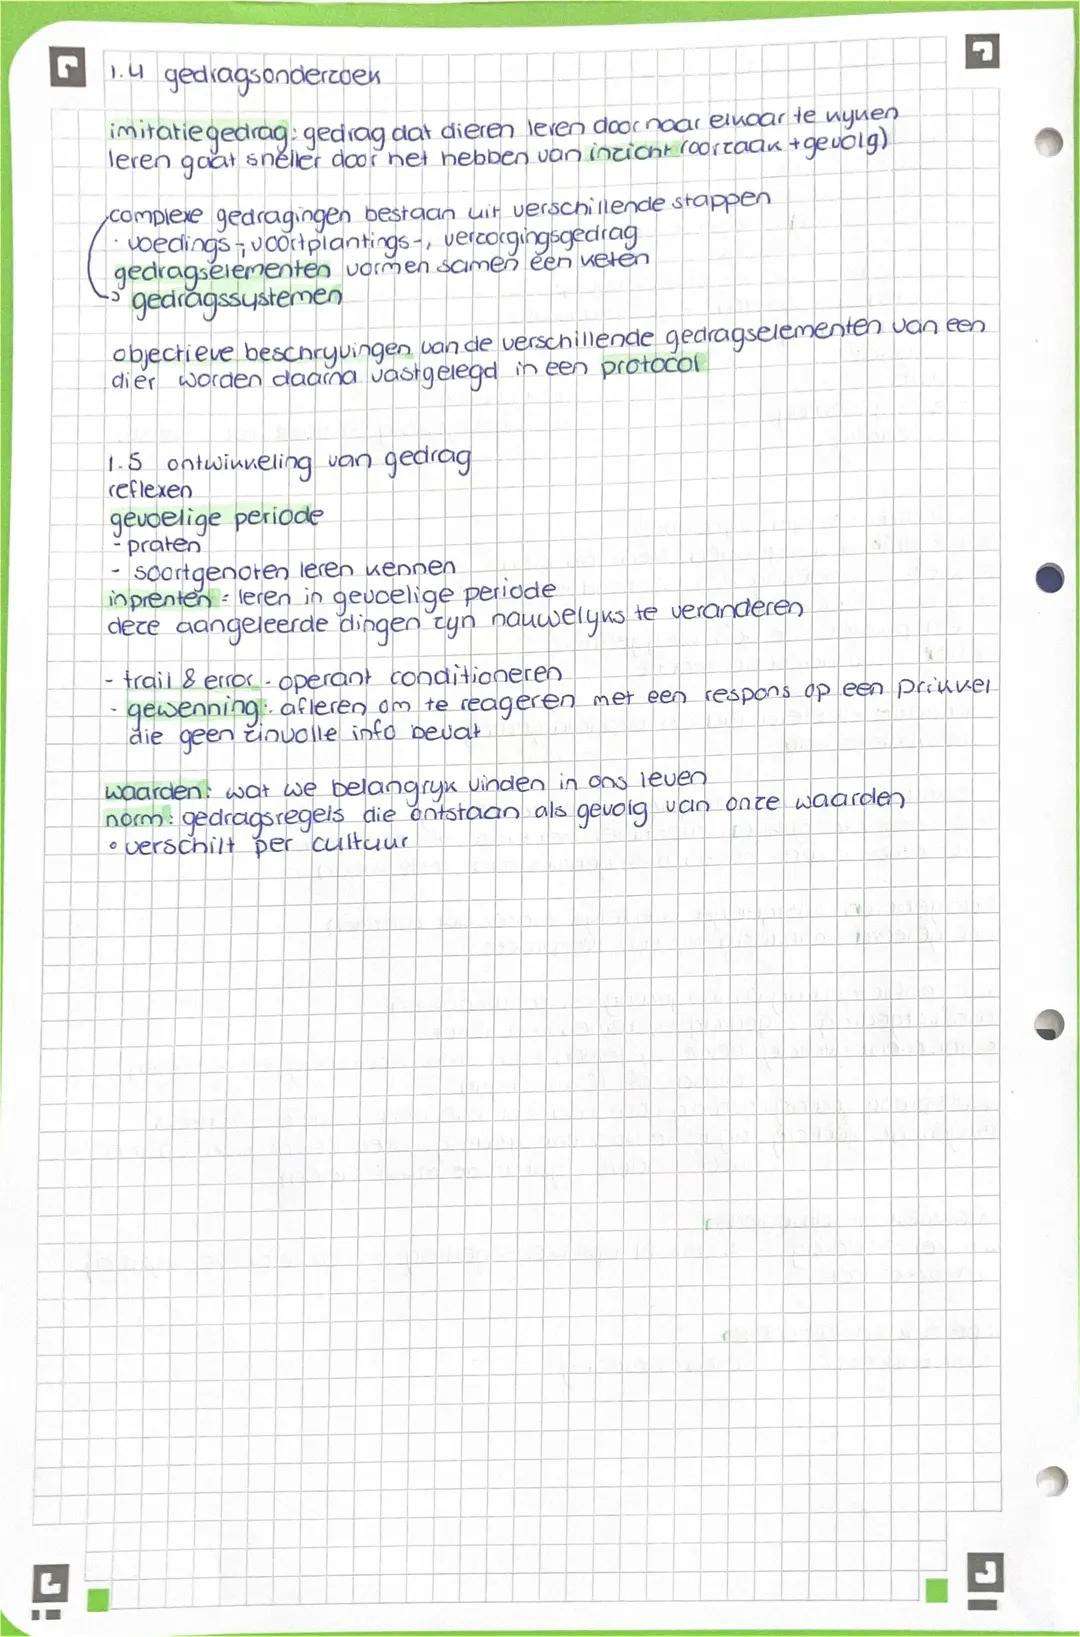 1.4 gedragsonderzoek
imitatiegedrag: gedrag dat dieren leren door naar elkaar te kijken
leren gaat sneller door het hebben van inzicht (oorzaak + gevolg)
complexe gedragingen bestaan uit verschillende stappen
· voedings-, voortplantings-, verzorgingsgedrag
gedragselementen vormen samen een keten
→ gedragssystemen
objectieve beschrijvingen van de verschillende gedragselementen van een
dier worden daarna vastgelegd in een protocol
1.5 ontwikkeling van gedrag
reflexen
gevoelige periode
- praten
- soortgenoten leren kennen
inprenten = leren in gevoelige periode
deze aangeleerde dingen zijn nauwelijks te veranderen
- trail & error - operant conditioneren
- gewenning: afleren om te reageren met een respons op een prikkel
die geen zinvolle info bevat
waarden: wat we belangrijk vinden in ons leven
norm: gedragsregels die ontstaan als gevolg van onze waarden
° verschilt per cultuur